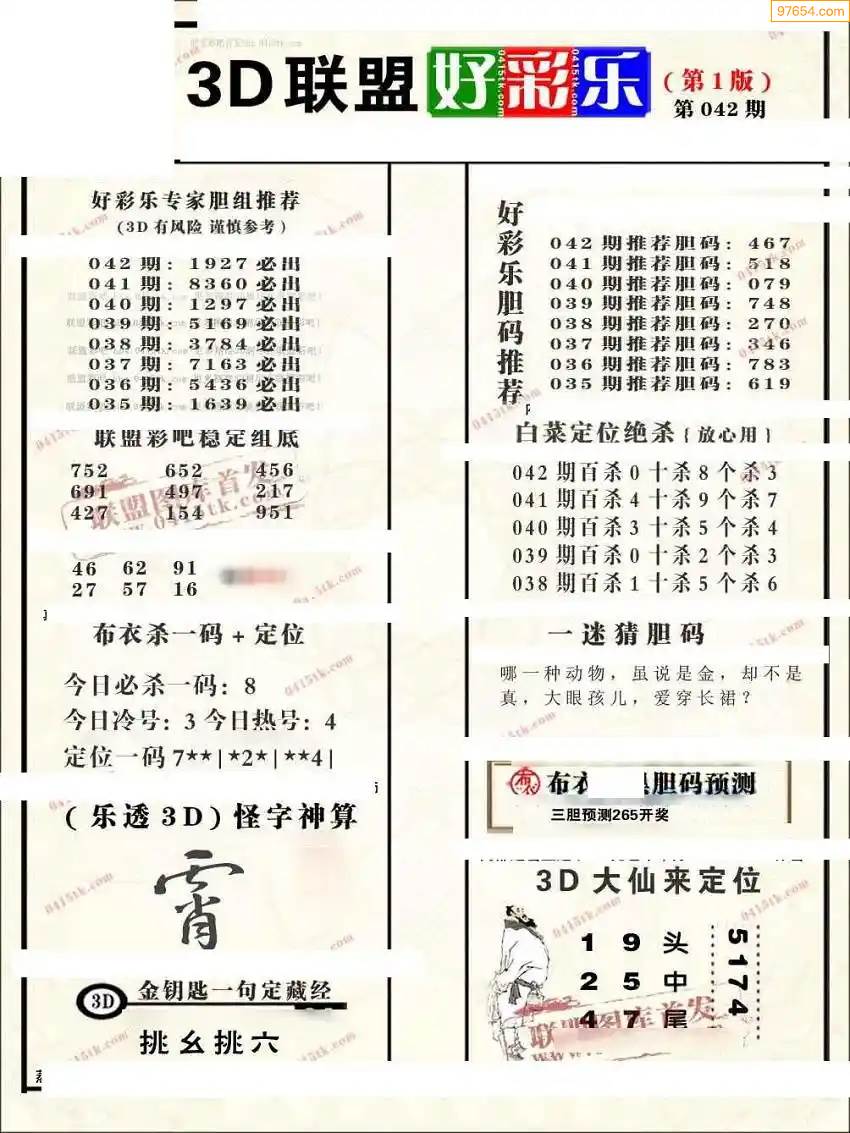 97654.com
3D联盟好彩乐(第1版)
第042期
好彩乐专家胆组推荐
(3D有风险 谨慎参考)
042期:1927必出
041期:8360必出
040期:1297必出
039期:5169必出
038期:3784必出
037期:7163必出
036期:5436必出
035期:1639必出
联盟彩吧稳定组底
752 652 456
691 497 217
427 154 951
联盟图库首发
www.0415tk.com
46 62 91
27 57 16
布衣杀一码+定位
今日必杀一码:8
今日冷号:3 今日热号:4
定位一码7**|*2*|**4|
(乐透3D)怪字神算
霄
3D 金钥匙一句定藏经
挑幺挑六
好彩乐胆码推荐
042期推荐胆码:467
041期推荐胆码:518
040期推荐胆码:079
039期推荐胆码:748
038期推荐胆码:270
037期推荐胆码:346
036期推荐胆码:783
035期推荐胆码:619
白菜定位绝杀{放心用}
042期百杀0十杀8个杀3
041期百杀4十杀9个杀7
040期百杀3十杀5个杀4
039期百杀0十杀2个杀3
038期百杀1十杀5个杀6
一迷猜胆码
哪一种动物，虽说是金，却不是
真，大眼孩儿，爱穿长裙？
布衣 胆码预测
三胆预测265开奖
3D大仙来定位
1 9 头
2 5 中
4 7 尾
5174
联盟图库首发
0415tk.com